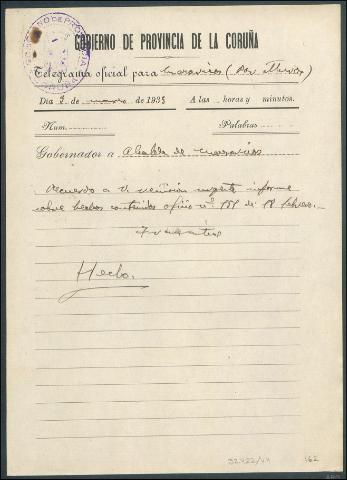 GOBIERNO DE PROVINCIA DE LA CORUÑA
Telegrama oficial para
Día 2 de marzo de 1938 A las horas y minutos.
Núm. Palabras
Gobernador a Alcalde de
Recuerdo a V. remisión urgente informe
sobre hechos contenidos oficio nº 151 de 18 febrero.
Hecho.
32422/44 162